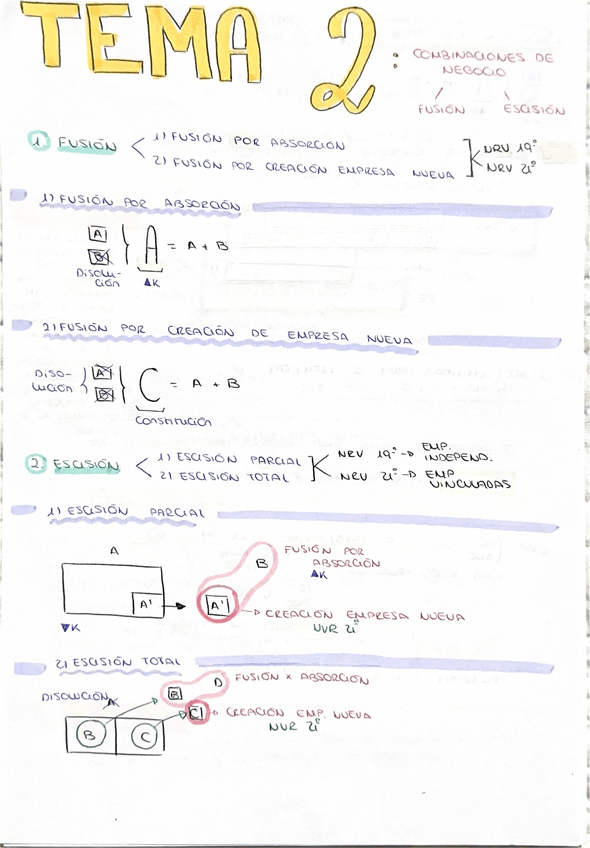 TEMA 2:
COMBINACIONES DE NEGOCIO
FUSIÓN ESCISIÓN
1. FUSIÓN
1) FUSIÓN POR ABSORCIÓN
2) FUSIÓN POR CREACIÓN EMPRESA NUEVA
NRV 19º
NRV 21º
1) FUSIÓN POR ABSORCIÓN
A
B
Disolu-
ción
A = A + B
▲K
2) FUSIÓN POR CREACIÓN DE EMPRESA NUEVA
Diso-
lución
A
B
C = A + B
Constitución
2. ESCISIÓN
1) ESCISIÓN PARCIAL
2) ESCISIÓN TOTAL
NRV 19º → EMP. INDEPEND.
NRV 21º → EMP VINCULADAS
1) ESCISIÓN PARCIAL
A
A'
▼K
B
A'
FUSIÓN POR
ABSORCIÓN
▲K
→ CREACIÓN EMPRESA NUEVA
NVR 21º
2) ESCISIÓN TOTAL
DISOLUCIÓN A
B
C
B
D
FUSIÓN x ABSORCIÓN
C
→ CREACIÓN EMP. NUEVA
NVR 21º